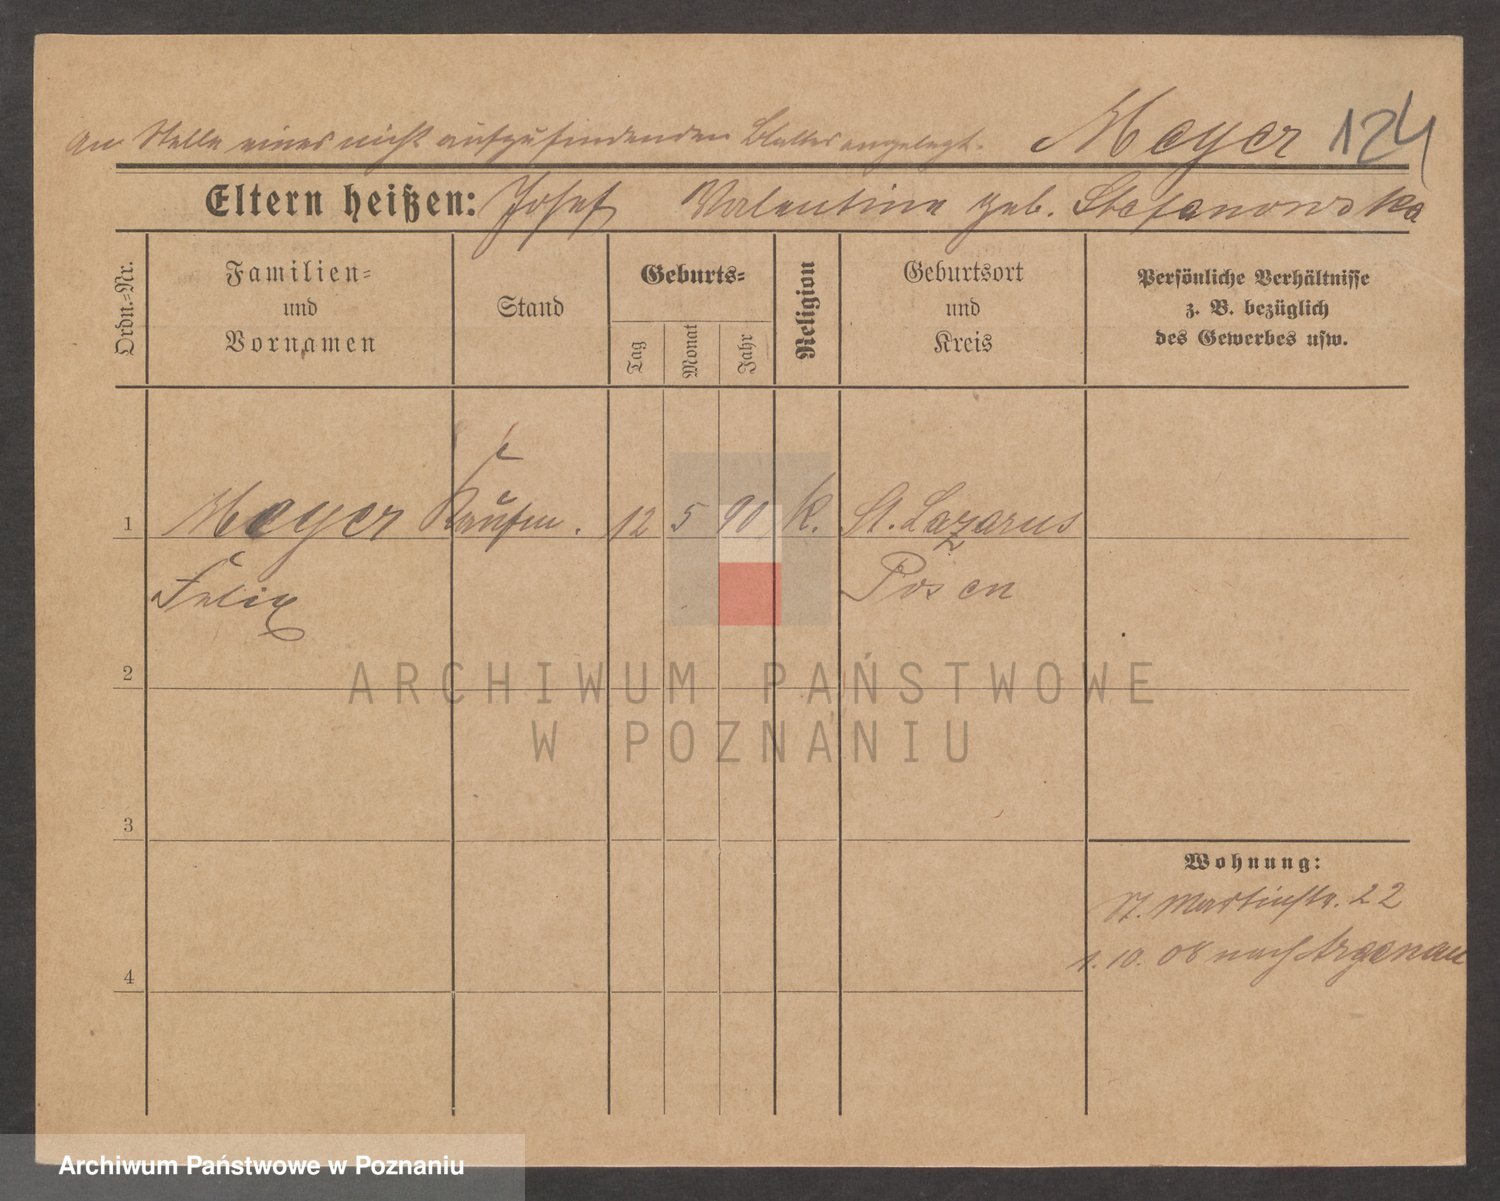 An Stelle eines nicht aufzufindenden Blattes angelegt. Meyer 124
Eltern heißen: Josef Valentine geb. Stefanowska
Ordn.-Nr.
Familien-
und
Vornamen
Stand
Geburts-
Tag
Monat
Jahr
Religion
Geburtsort
und
Kreis
Persönliche Verhältnisse
z. B. bezüglich
des Gewerbes usw.
1 Meyer Kaufm. 12 5 90 k. St. Lazarus
Felix Posen
2
ARCHIWUM PAŃSTWOWE
W POZNANIU
3
Wohnung:
St. Martinstr. 22
1. 10. 08 nach Argenau
4
Archiwum Państwowe w Poznaniu